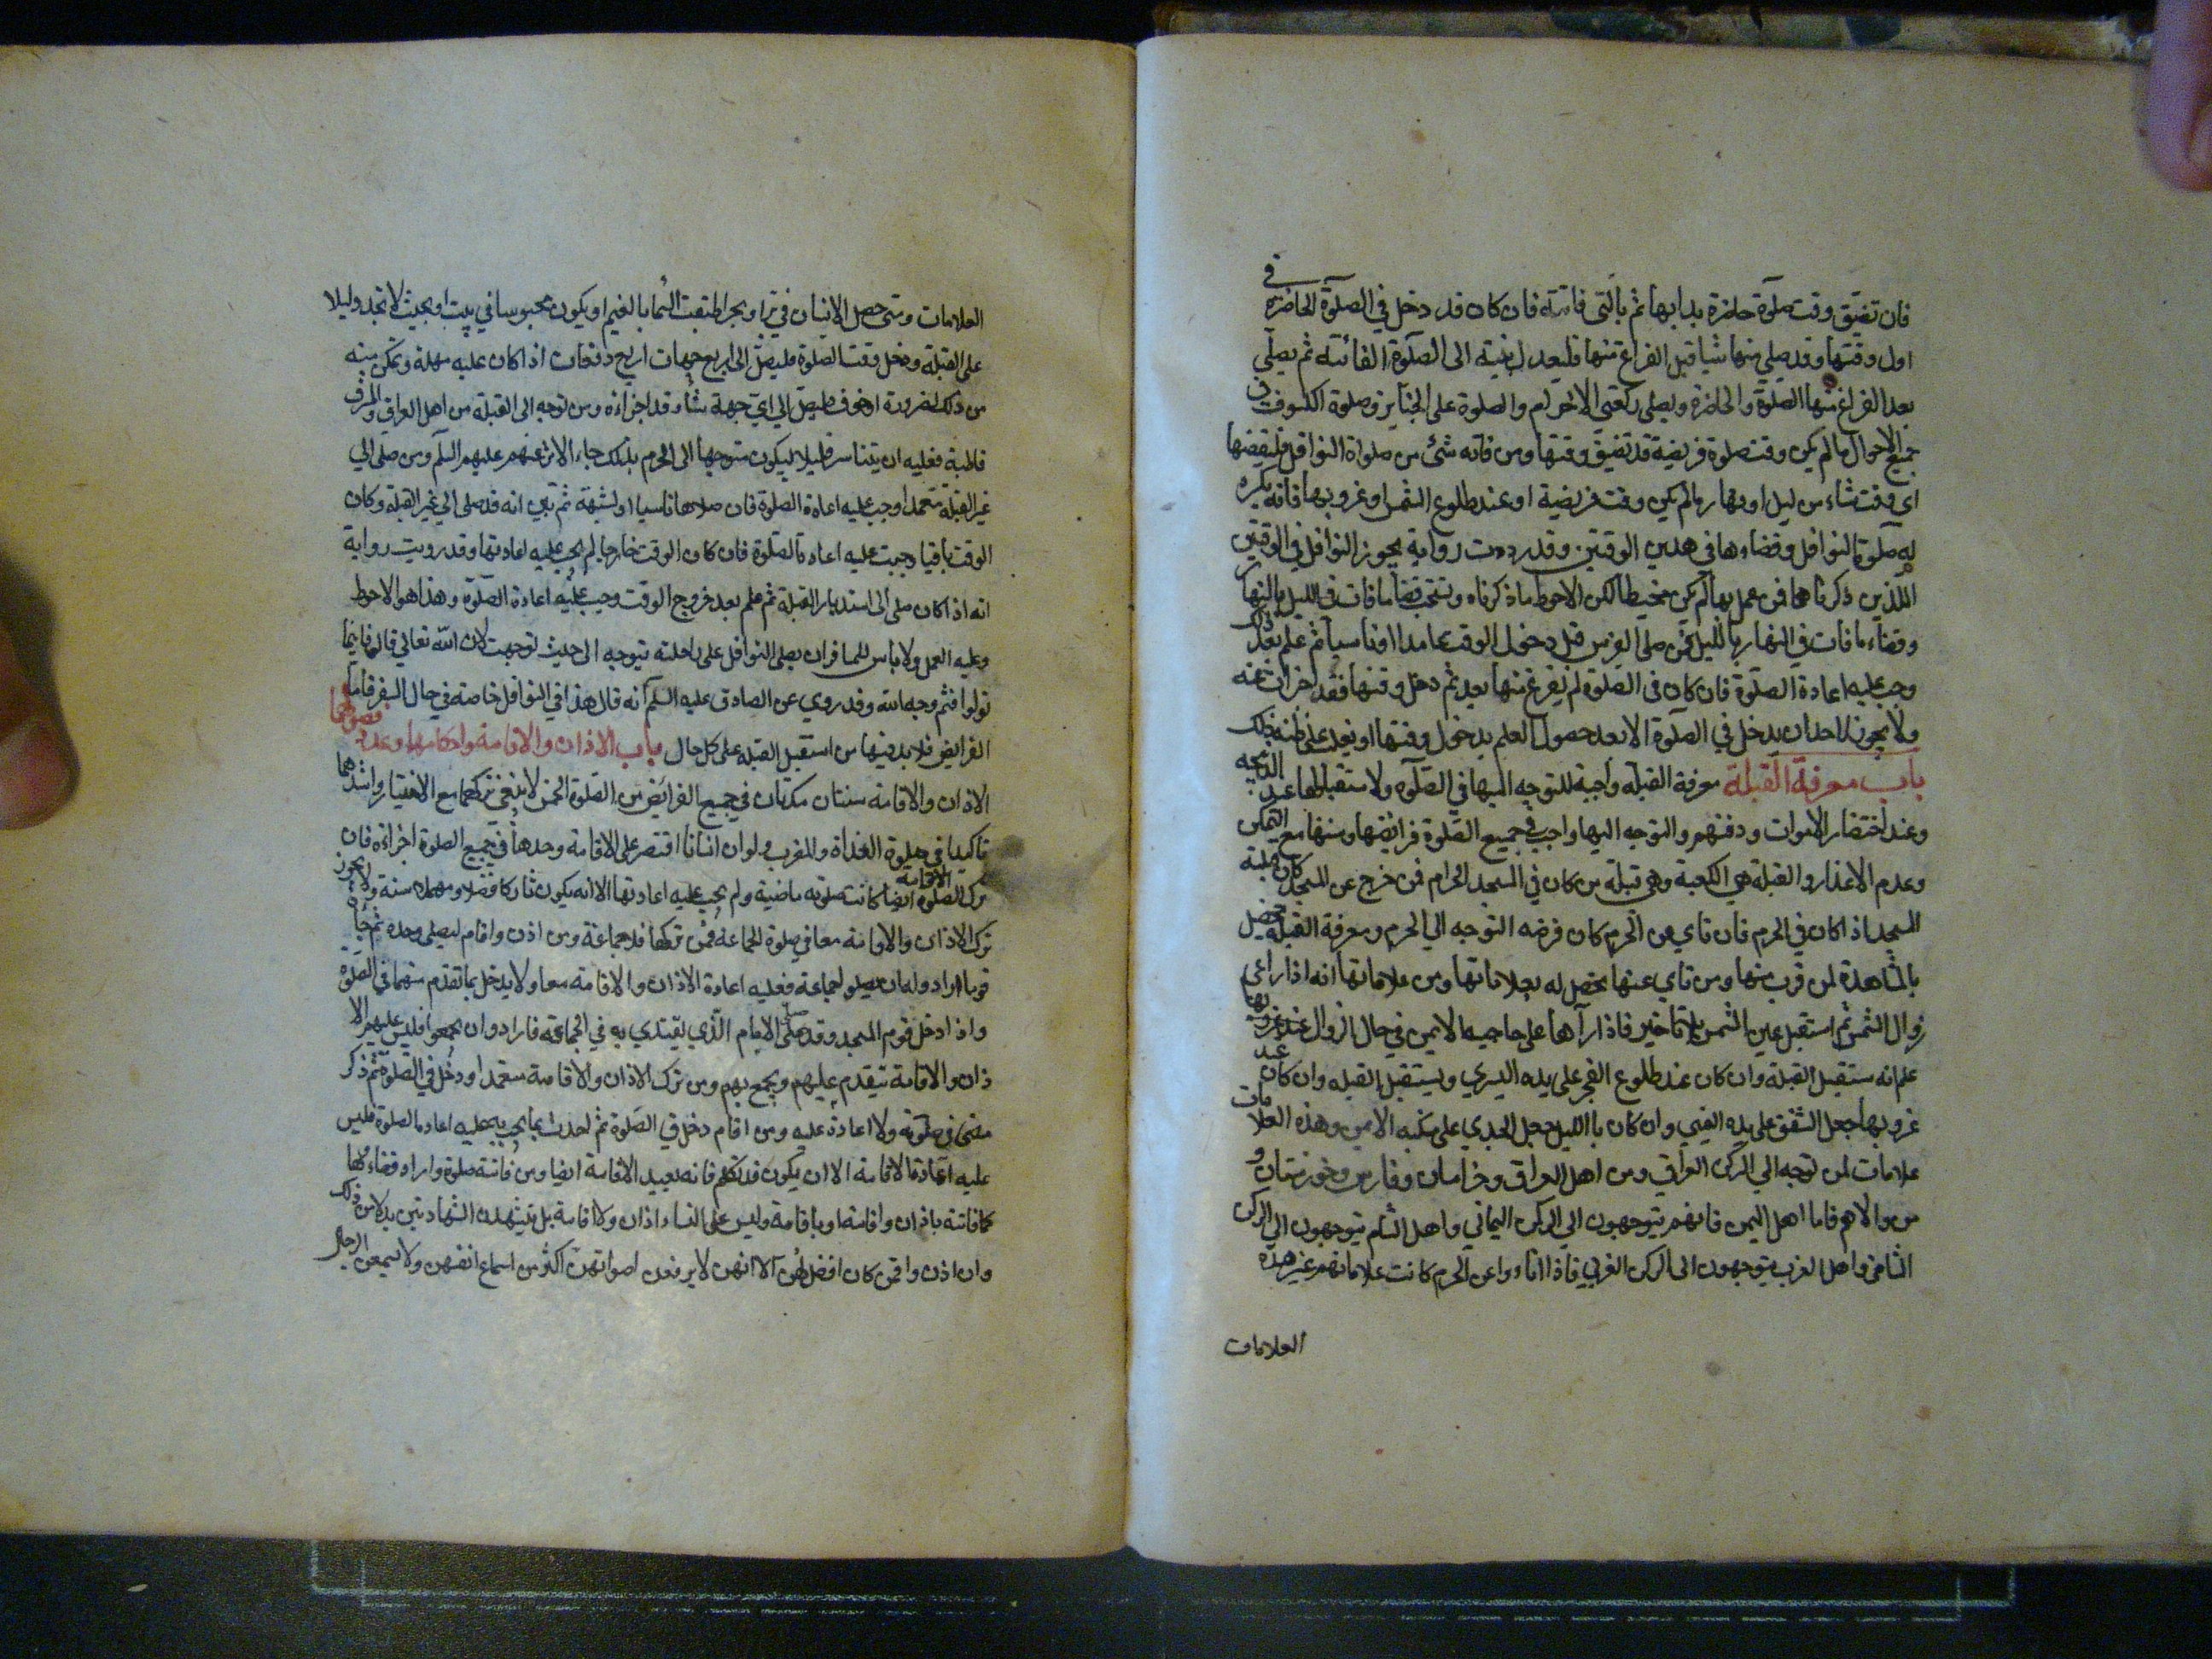 فان تضيّق وقت صلوة حاضرة بدا بها ثم بالتي فاتته فان كان قد دخل في الصلوة الحاضرة في
اول وقتها وقد صلي منها شيا قبل الفراغ منها فليعدل بنيته الى الصلوة الفائتة ثم يصلّي
بعد الفراغ منها الصلوة الحاضرة ويصلى ركعتي الاحرام والصلوة على الجنايز وصلوة الكسوف في
جميع الاحوال ما لم يكن وقت صلوة فريضة قد تضيق وقتها ومن فاته شئ من صلواة النوافل فليقضها
اي وقت شاء من ليل او نهار ما لم يكن وقت فريضة او عند طلوع الشمس او غروبها فانه يكره
له صلوة النوافل وقضاءها في هذين الوقتين وقد وردت رواية بجواز النوافل في الوقتين
اللذين ذكرناهما فمن عمل بها لم يكن مخطيا لكن الاحوط ما ذكرناه ويستحب قضاء ما فات في الليل بالنهار
وقضاء ما فات في النهار بالليل فمن صلى الفرض قبل دخول الوقت عامدا او ناسيا ثم علم بعد ذلك
وجب عليه اعادة الصلوة فان كان في الصلوة لم يفرغ منها بعد ثم دخل وقتها فقد اجزات عنه
ولا يجوز لاحد ان يدخل في الصلوة الا بعد حصول العلم بدخول وقتها او يغلب على ظنه ذلك
باب معرفة القبلة معرفة القبلة واجبة للتوجه اليها في الصلوة ولاستقبالها عند الذبيحه
وعند احتضار الاموات ودفنهم والتوجه اليها واجب في جميع الصلوة فرائضها وسننها مع التمكن
وعدم الاعذار والقبلة هي الكعبة وهي قبلة من كان في المسجد الحرام فمن خرج عن المسجد كان قبلته
المسجد اذا كان في الحرم فان ناي عن الحرم كان فرضه التوجه الي الحرم ومعرفة القبلة تحصل
بالمشاهدة لمن قرب منها ومن ناي عنها تحصل له بعلاماتها ومن علاماتها انه اذا راعي
زوال الشمس ثم استقبل عين الشمس بلا تاخير فاذا رآها على حاجبه الايمن في حال الزوال
علم انه مستقبل القبلة وان كان عند طلوع الفجر على يده اليسري ويستقبل القبله وان كان عند
غروبها جعل الشفق على يده اليمني وان كان بالليل جعل الجدي على منكبه الايمن وهذه العلامات
علامات لمن توجه الي الركن العراقي ومن اهل العراق وخراسان وفارس وخوزستان و
من والاهم فاما اهل اليمن فانهم يتوجهون الي الركن اليماني واهل الشام يتوجهون الي الركن
الشامي واهل الغرب يتوجهون الى الركن الغربي فاذا ناءوا عن الحرم كانت علاماتهم غير هذه
العلامات
العلامات ومتى حصل الانسان في بر او بحر اطبقت السّما بالغيم او يكون محبوسا في بيت او بحيث لا تجد دليلا
على القبلة ودخل وقت الصّلوة فليصلّ الى اربع جهات اربع دفعات اذا كان عليه مهلة وتمكن منه
من ذلك لضرورة او خوف فليصل الي ايّ جهة شاء وقد اجزاه ومن توجه الى القبلة من اهل العراق والمشرق
قاطبة فعليه ان يتياسر قليلا ليكون متوجها الى الحرم بذلك جاء الاثر عنهم عليهم السلم ومن صلى الي
غير القبلة متعمدا وجب عليه اعادة الصلوة فان صلاها ناسيا او لشبهة ثم تبين انه قد صلى الي غير القبلة وكان
الوقت باقيا وجبت عليه اعادة الصّلوة فان كان الوقت خارجا لم يجب عليه اعادتها وقد رويت رواية
انه اذا كان صلى الى استدبار القبلة ثم علم بعد خروج الوقت وجب عليه اعادة الصّلوة وهذا هو الاحوط
وعليه العمل ولا باس للمسافر ان يصلى النوافل على راحلته يتوجه الى حيث توجهت لان اللّه تعالي قال فاينما
تولوا فثم وجه الله وقد روي عن الصادق عليه السلم انه قال هذا في النوافل خاصه في حال السفر فاما
الفرايض فلا بد فيها من استقبل القبله على كل حال باب الاذان والاقامة واحكامهما وعدد فصولهما
الاذان والاقامه سنتان مؤكدتان في جميع الفرائض من الصّلوة الخمس لا ينبغي تركهما مع الاختيار واشدهما
تاكيدا في صلوة الغداة والمغرب ولو ان انسانا اقتصر على الاقامة وحدها في جميع الصلوة اجزاه فان
ترك الاقامه ايضا كانت صلوته ماضية ولم يجب عليه اعادتها الا انه يكون تاركا فضلا ومهملا سنة ولا يجوز
ترك الاذان والاقامة معا في صلوة الجماعة فمن تركهما فلا جماعة ومن اذن واقام ليصلى وحده ثم جاء
قوم وارادوا ان يصلوا جماعة فعليه اعادة الاذان والاقامة معا ولا يدخل بما تقدم منهما في الصلوة
واذا دخل قوم المسجد وقد صلّى الامام الّذي يقتدي به في الجماعة فارادوا ان يجمعوا فليس عليهم الا
ذان والاقامة يتقدم عليهم ويجمع بهم ومن ترك الاذان والاقامة متعمدا ودخل في الصّلوة ثم ذكر
مضى في صلوته ولا اعادة عليه ومن اقام دخل في الصّلوة ثم احدث بما يجب به عليه اعادة الصلوة فليس
عليه اعادة الاقامة الا ان يكون قد تكلم فانه يعيد الاقامة ايضا ومن فاتته صلوة واراد قضاءها
كما فاتته باذان واقامة او باقامة وليس على النساء اذان ولا اقامة بل يتشهدن الشهادتين بدلا من ذلك
وان اذن واقمن كان افضل لهن الا انهن لا يرفعن اصواتهن اكثر من اسماع انفسهن ولا يسمعن الرجال